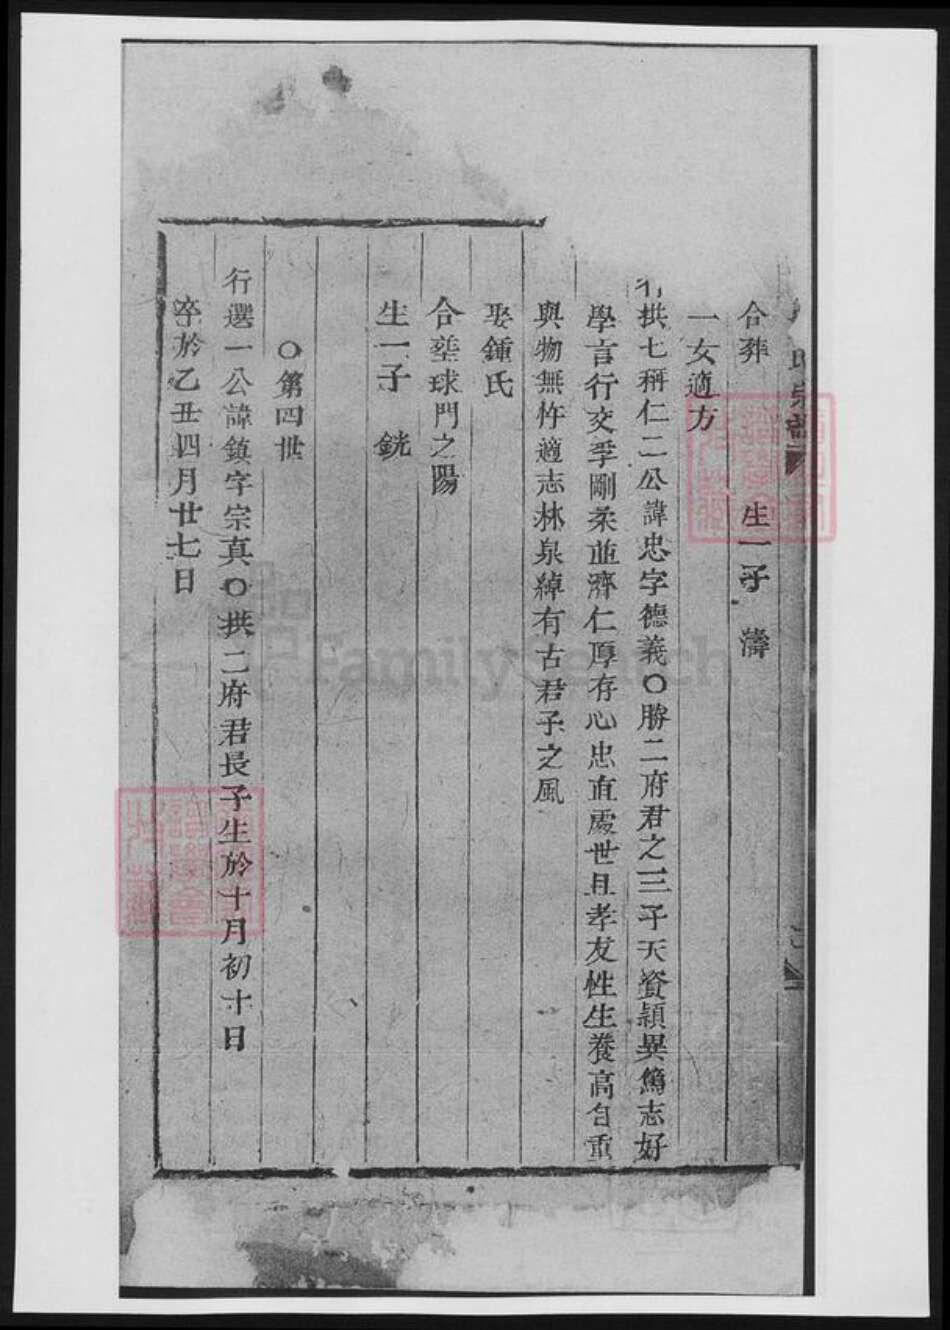 氏宗譜
合葬 生一子 濤
一女適方
行拱七稱仁二公諱忠字德義○勝二府君之三子天資頴異篤志好
學言行交孚剛柔並濟仁厚存心忠直處世且孝友性生養高自重
與物無忤適志林泉綽有古君子之風
娶鍾氏
合塟球門之陽
生一子 銧
○第四世
行選一公諱鎮字宗真○拱二府君長子生於十月初十日
卒於乙丑四月廿七日
FamilySearch